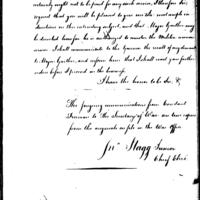 certainly ought not to be paid for any such service, I therefore Sir,
request that you will be pleased to give me the most ample in
structions on this interesting subject, and that Major Gaither may
be directed how far he is authorized to muster the Militia service
men. I shall communicate to the Governor the result of my documents
to Major Gaither, and inform him that I shall wait your further
orders before I proceed in the business.
I have the honor to be Sir, &c.
The foregoing communications from Constant
Freeman to the Secretary of War are true copies
from the originals on file in the War Office.
Jno. Stagg Junior
Chief Clerk